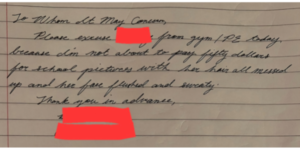 To Whom It May Concern,
Please excuse from gym/PE today,
because I'm not about to pay fifty dollars
for school pictures with her hair all messed
up and her face flushed and sweaty.
Thank you in advance,